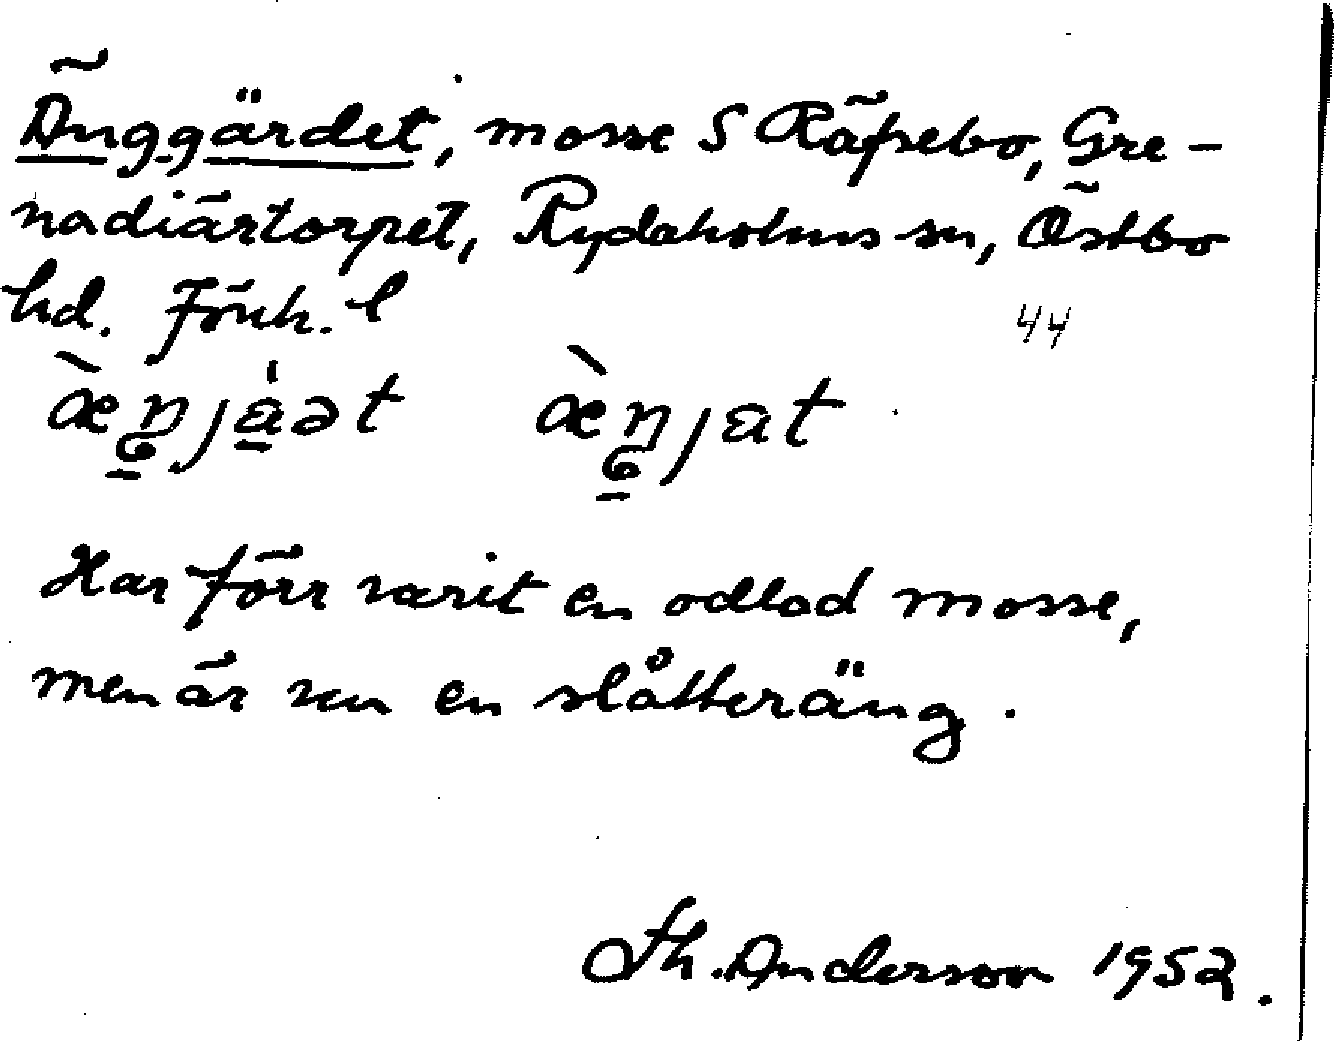 Änggärdet, mosse S Räfsebo, Gre-
nadiärtorpet, Rydaholms sn, Östbo
hd. Jönk. l
44
æ̀ŋjàət æ̀ŋjat
Har förr varit en odlad mosse,
men är nu en slåtteräng.
Th. Anderson 1952.